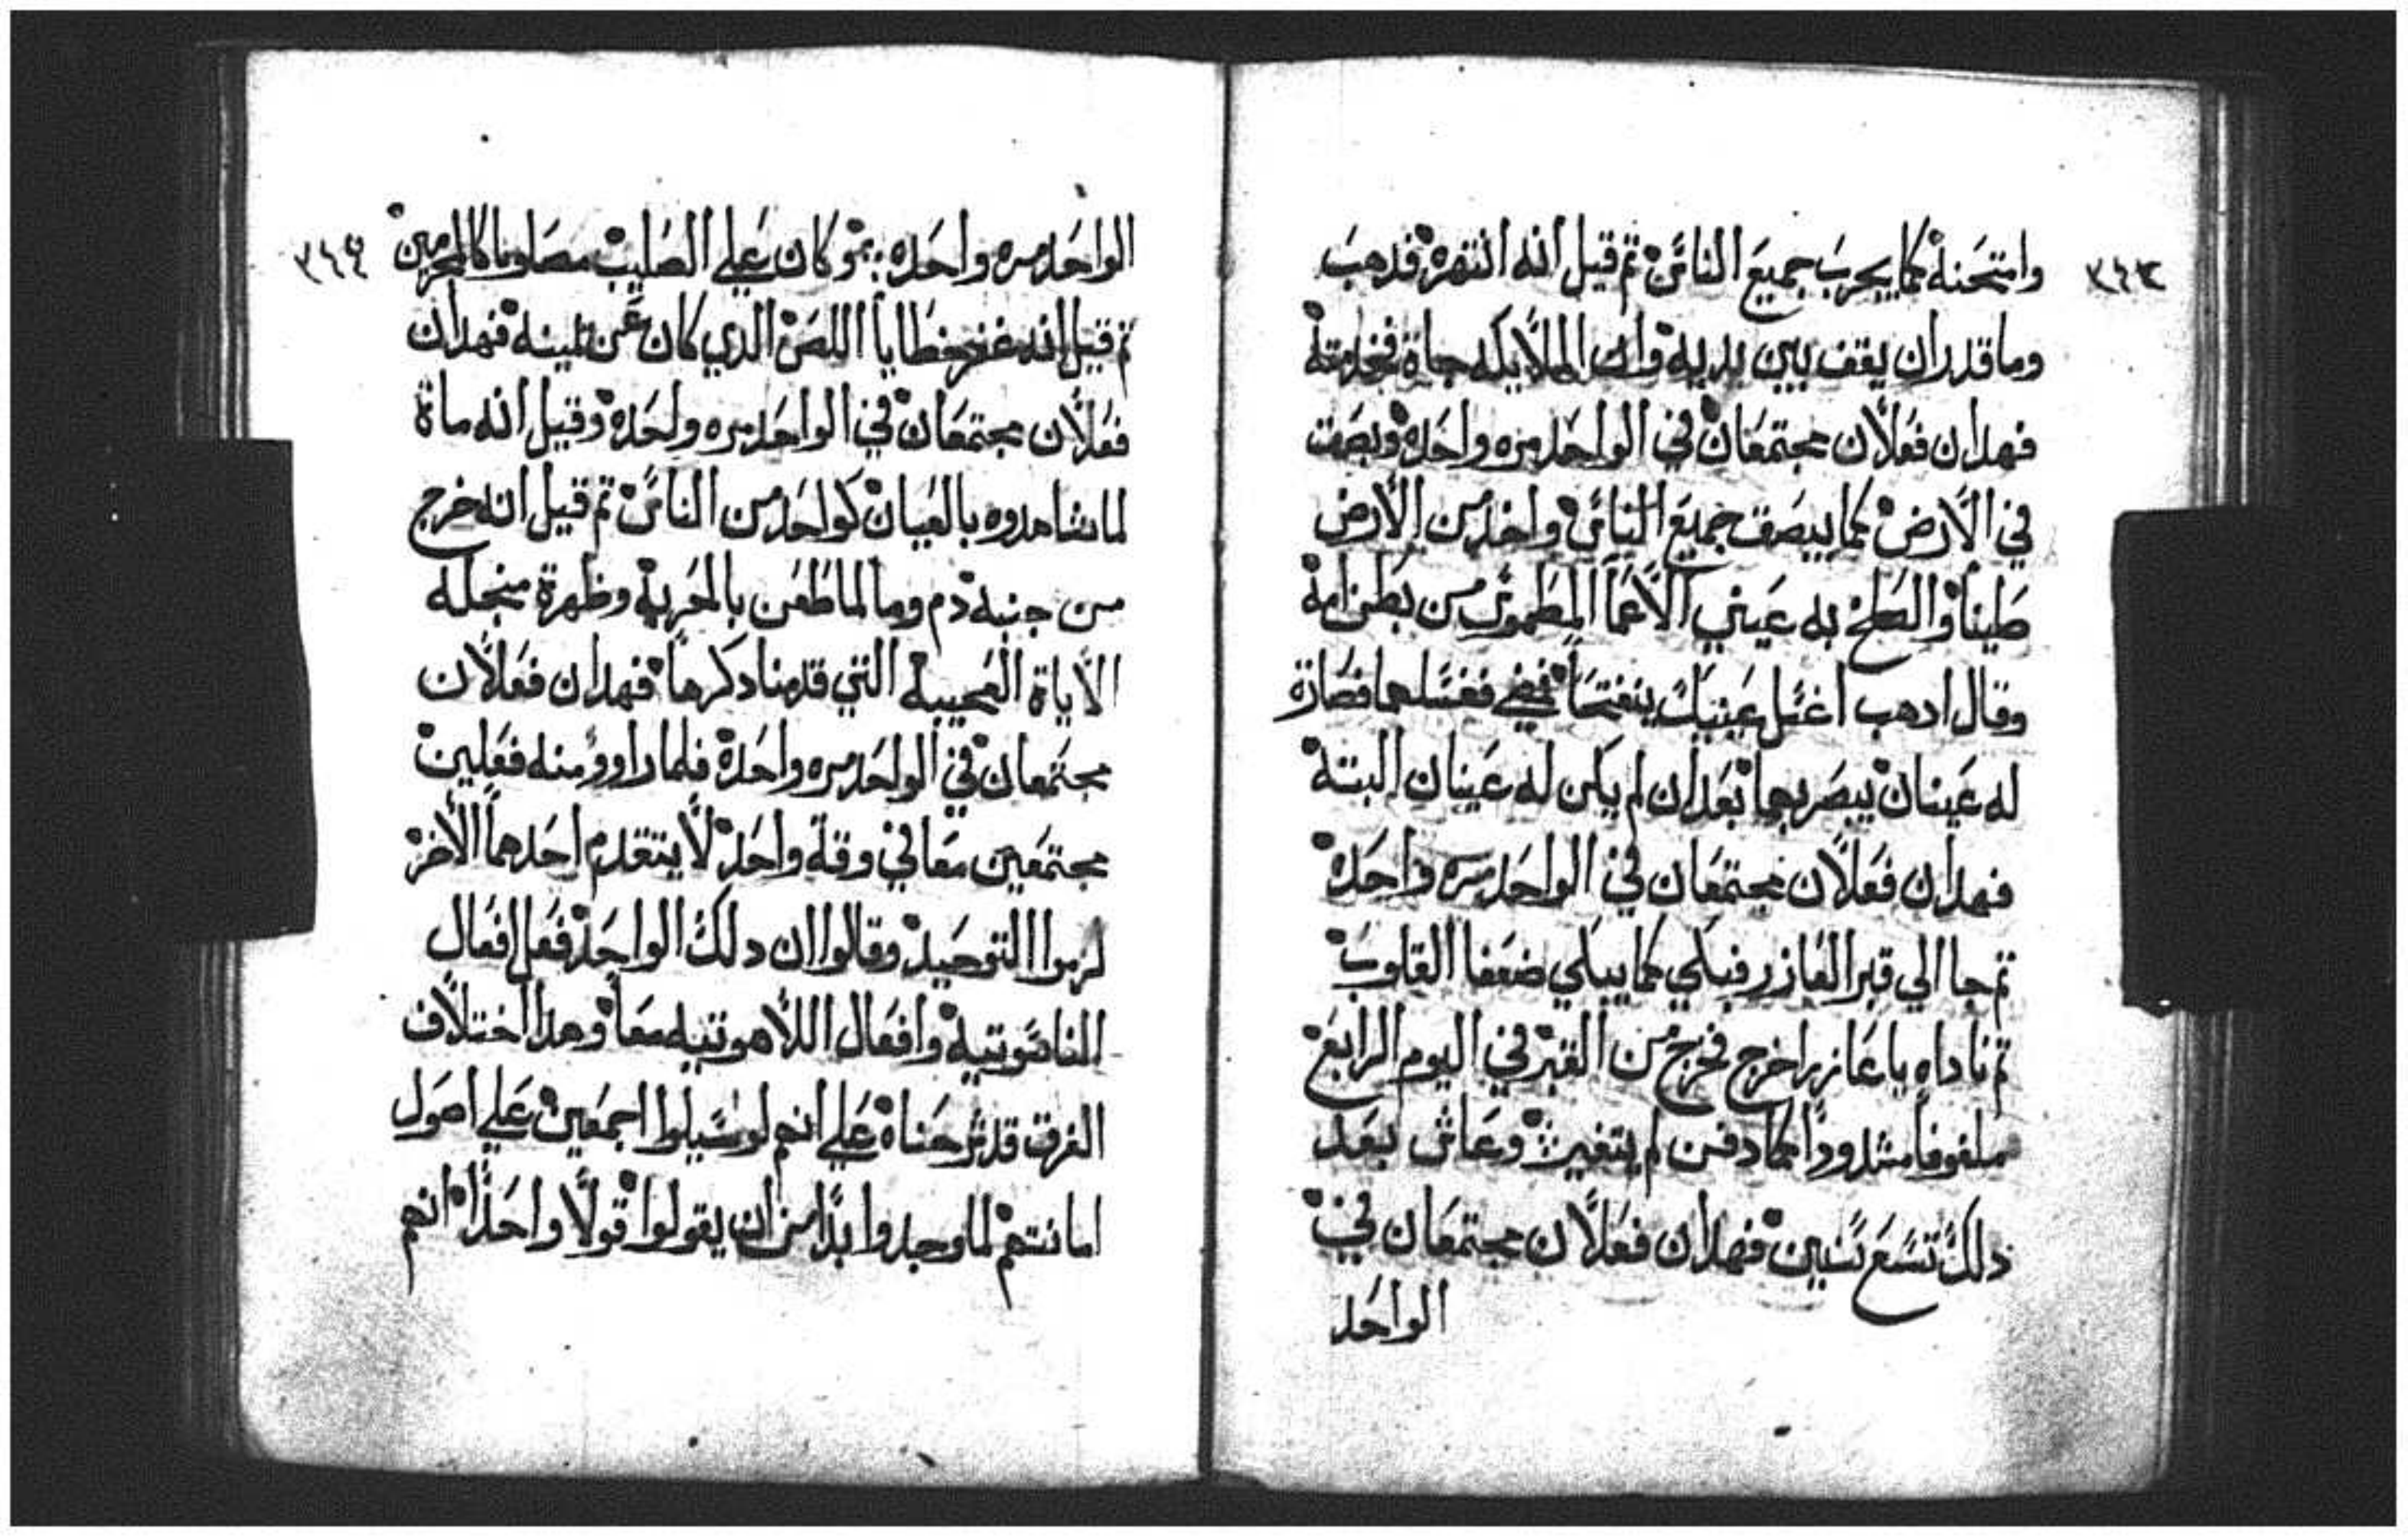 ٣٤٣
وامتحنه كما يجرب جميع الناس ثم قيل انه انتهره فدهب
وما قدر ان يقف بين يديه وان الملايكه جاة فخدمته
فهدان فعلان مجتمعان في الواحد مره واحده وبصق
في الارض كما يبصق جميع الناس واخد من الارض
طينا والطخ به عيني الاعما المطموس من بطن امه
وقال ادهب اغسل عينيك ينفتحا فغسلهما فصارة
له عينان يبصر بهما بعد ان لم يكن له عينان البتة
فهدان فعلان مجتمعان في الواحد مره واحدة
ثم جا الي قبر العازر فبكي كما يبكي ضعفا القلوب
ثم ناداه يا عازر اخرج فخرج من القبر في اليوم الرابع
ملفوفا مشدودا كما دفن لم يتغير وعاش بعد
دلك تسع سنين فهدان فعلان مجتمعان في
الواحد
٣٤٤
الواحد مره واحده وكان علي الصليب مصلوبا كالمجرمين
ثم قيل انه غفر خطايا اللص الدي كان عن يمينه فهدان
فعلان مجتمعان في الواحد مره واحدة وقيل انه ماة
لما شاهدوه بالعيان كواحد من الناس ثم قيل انه خرج
من جنبه دم وما لما طعن بالحربة وظهرة منجله
الاياة العجيبة التي قدمنا دكرها فهدان فعلان
مجتمعان في الواحد مره واحدة فلما راوو منه فعلين
مجتمعين معا في وقة واحد لا يتقدم احدهما الاخر
لزموا التوحيد وقالوا ان دلك الواحد فعل افعال
الناسوتية وافعال اللاهوتيه معا وهدا اختلاف
الفرق قد شرحناه علي انهم لو سيلوا اجمعين علي اصول
امانتهم لما وجدوا بدا من ان يقولوا قولا واحدا انهم